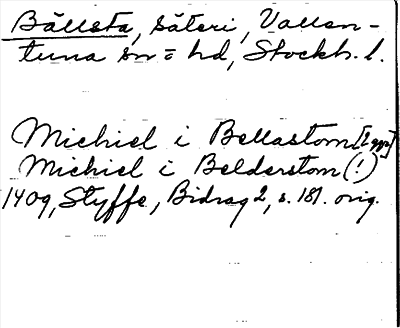 Bällsta, säteri, Vallen-
tuna sn o hd, Stockh. l.
Michiel i Bellastom [2 ggr]
Michiel i Belderstom (!)
1409, Styffe, Bidrag 2, s. 181. orig.